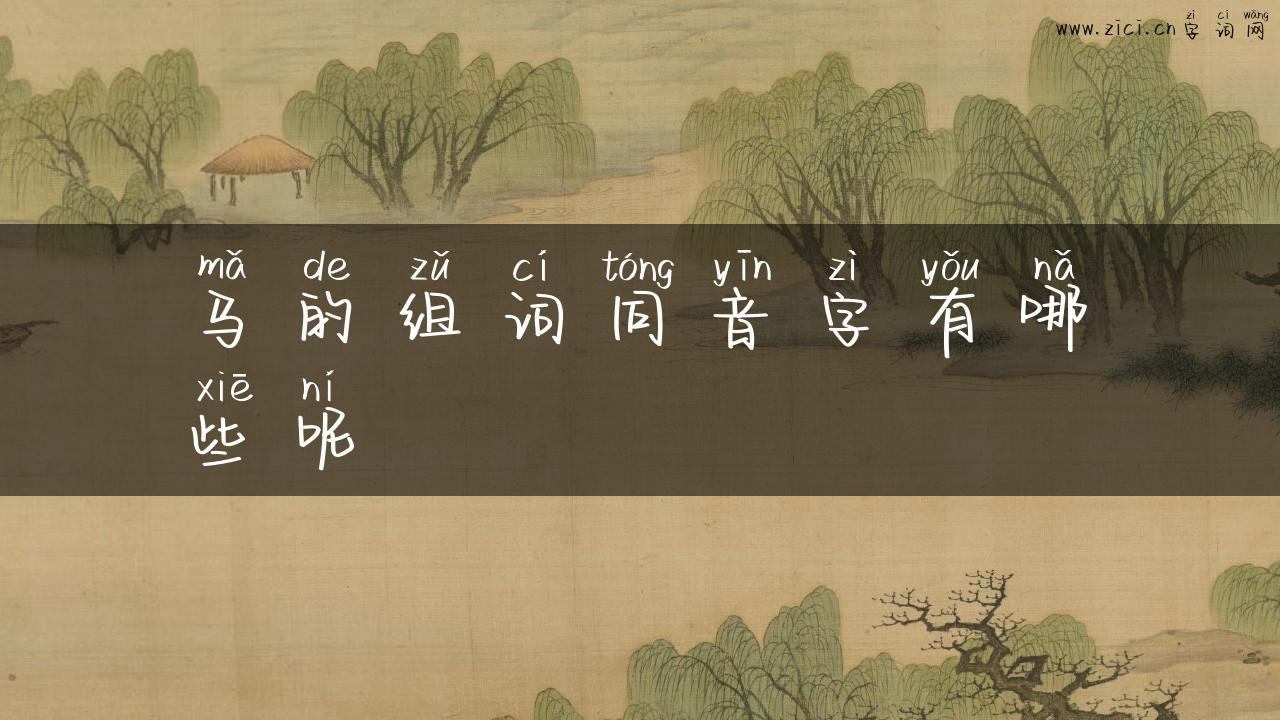 zì cí wǎng
www.zici.cn 字 词 网
mǎ de zǔ cí tóng yīn zì yǒu nǎ
马 的 组 词 同 音 字 有 哪
xiē ní
些 呢